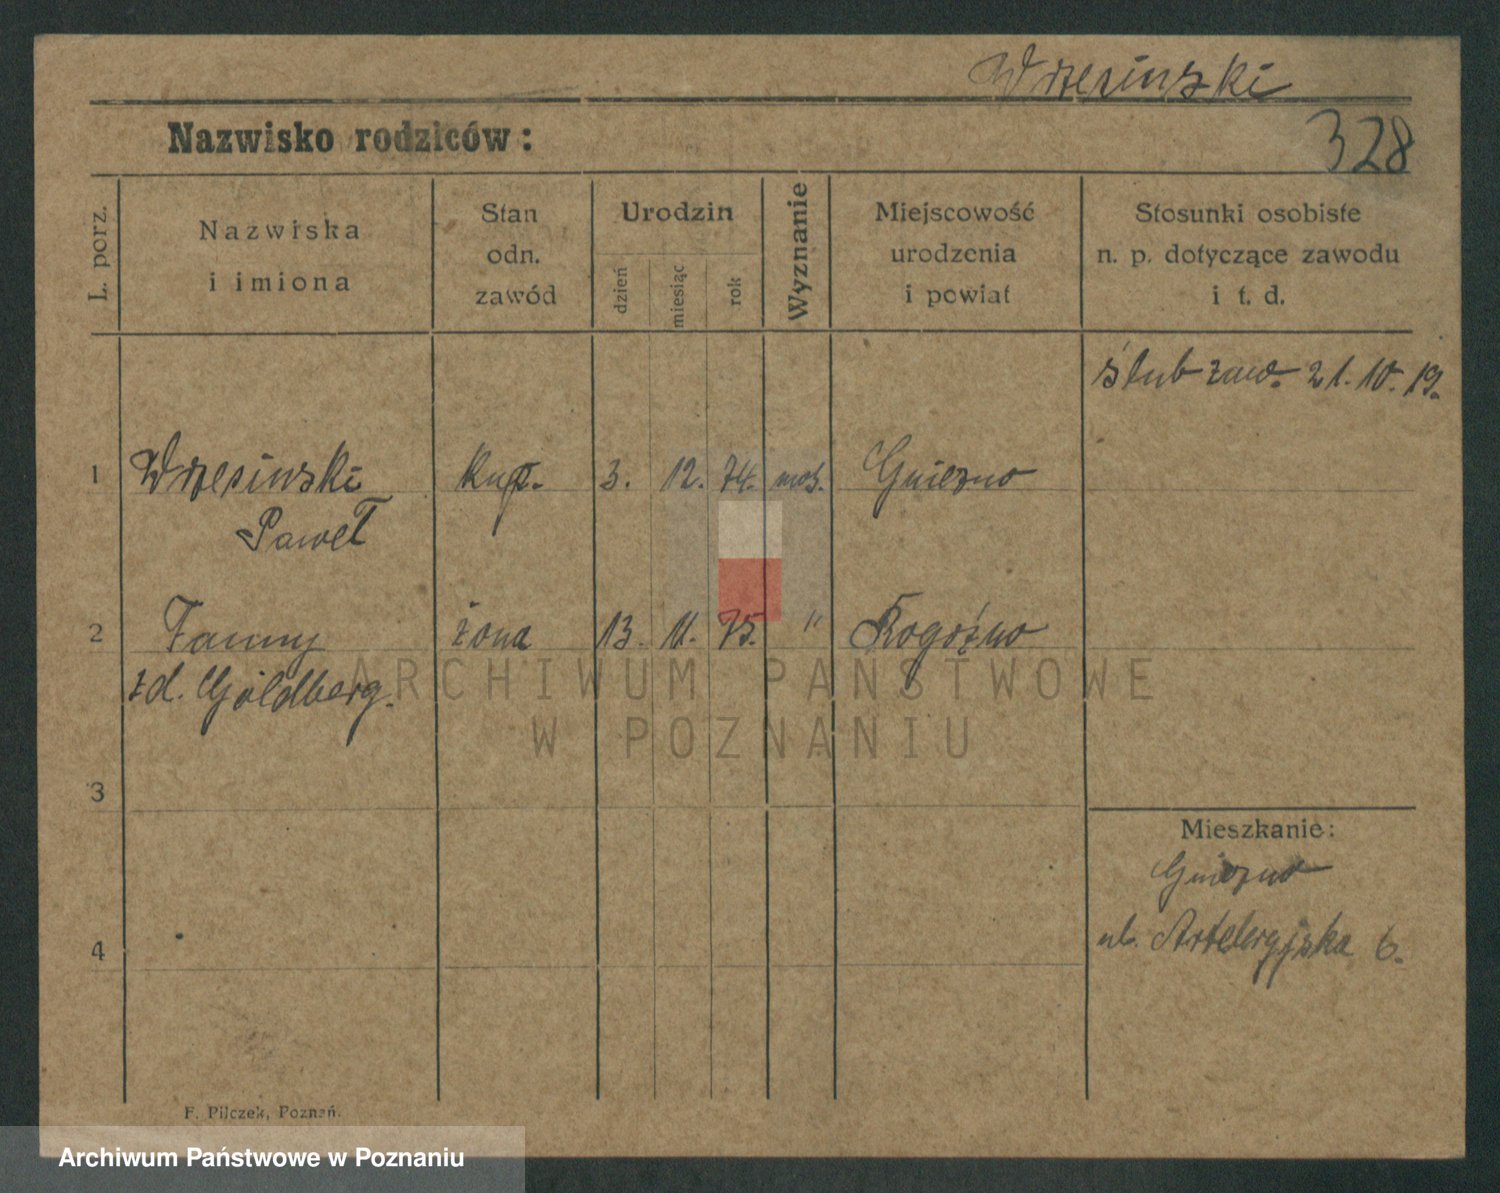 Wrzesinski
Nazwisko rodziców:
328
L. porz.
Nazwiska
i imiona
Stan
odn.
zawód
Urodzin
dzień
miesiąc
rok
Wyznanie
Miejscowość
urodzenia
i powiat
Stosunki osobiste
n. p. dotyczące zawodu
i t. d.
ślub zaw. 21.10.19.
1
Wrzesinski
Paweł
kup.
3. 12. 74. moj.
Gniezno
2
Fanny
żona
13. 11. 75. "
Rogoźno
zd. Goldberg.
ARCHIWUM PAŃSTWOWE
W POZNANIU
3
Mieszkanie:
Gniezno
4
ul. 6.
F. Pilczek, Poznań.
Archiwum Państwowe w Poznaniu